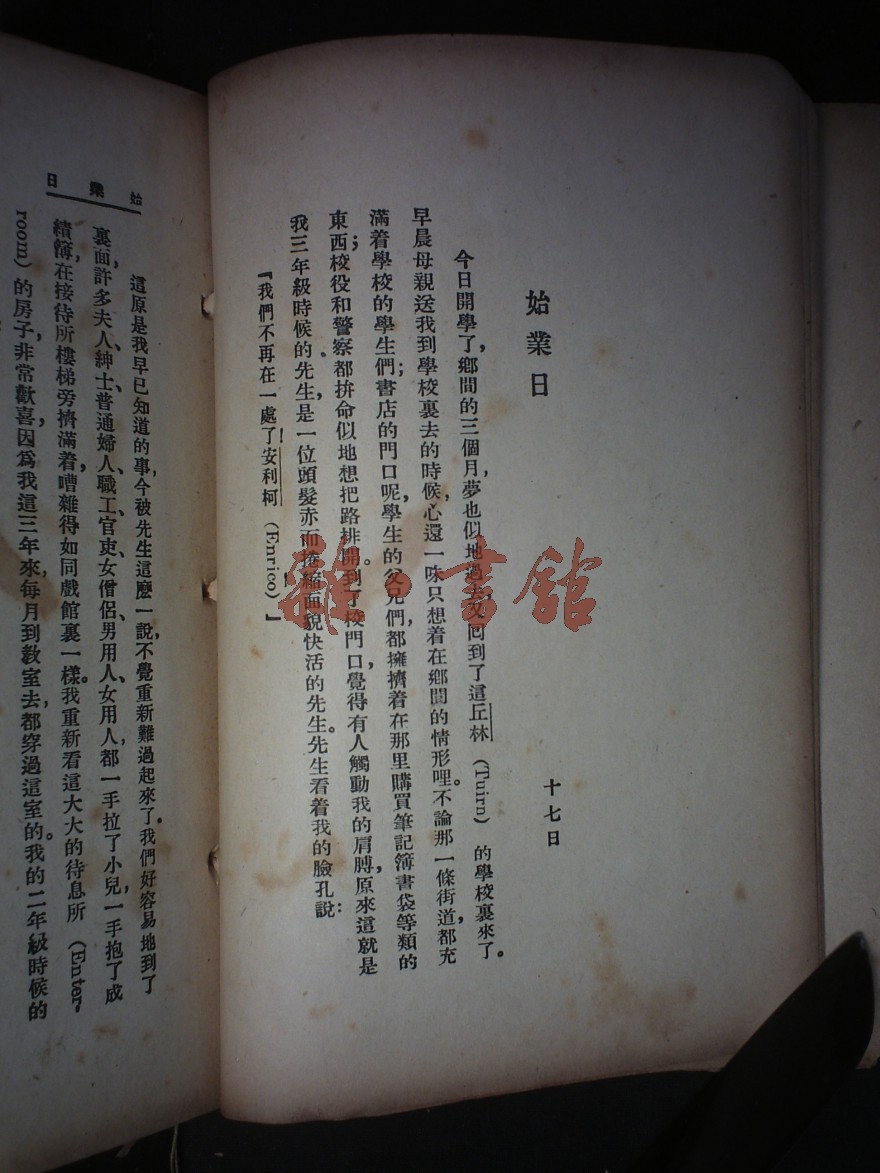 始業日
十七日
今日開學了，鄉間的三個月，夢也似地過去，又回到了這丘林（Tuirn）的學校裏來了。
早晨母親送我到學校裏去的時候，心還一味只想着在鄉間的情形哩。不論那一條街道都充
滿着學校的學生們；書店的門口呢，學生的父兄們都擁擠着在那里購買筆記簿書袋等類的
東西；校役和警察都拚命似地想把路排開。到了校門口，覺得有人觸動我的肩膊，原來這就是
我三年級時候的先生，是一位頭髮赤而捲縮面貌快活的先生。先生看着我的臉孔說：
『我們不再在一處了！安利柯（Enrico）』
始業日
這原是我早已知道的事，今被先生這麼一說，不覺重新難過起來了。我們好容易地到了
裏面，許多夫人、紳士、普通婦人、職工、官吏、女僧侶、男用人、女用人、都一手拉了小兒，一手抱了成
績簿，在接待所樓梯旁擠滿着，嘈雜得如同戲館裏一樣。我重新看這大大的待息所（Enter-
room）的房子，非常歡喜，因爲我這三年來，每月到教室去，都穿過這室的。我的二年級時候的
雜·書館